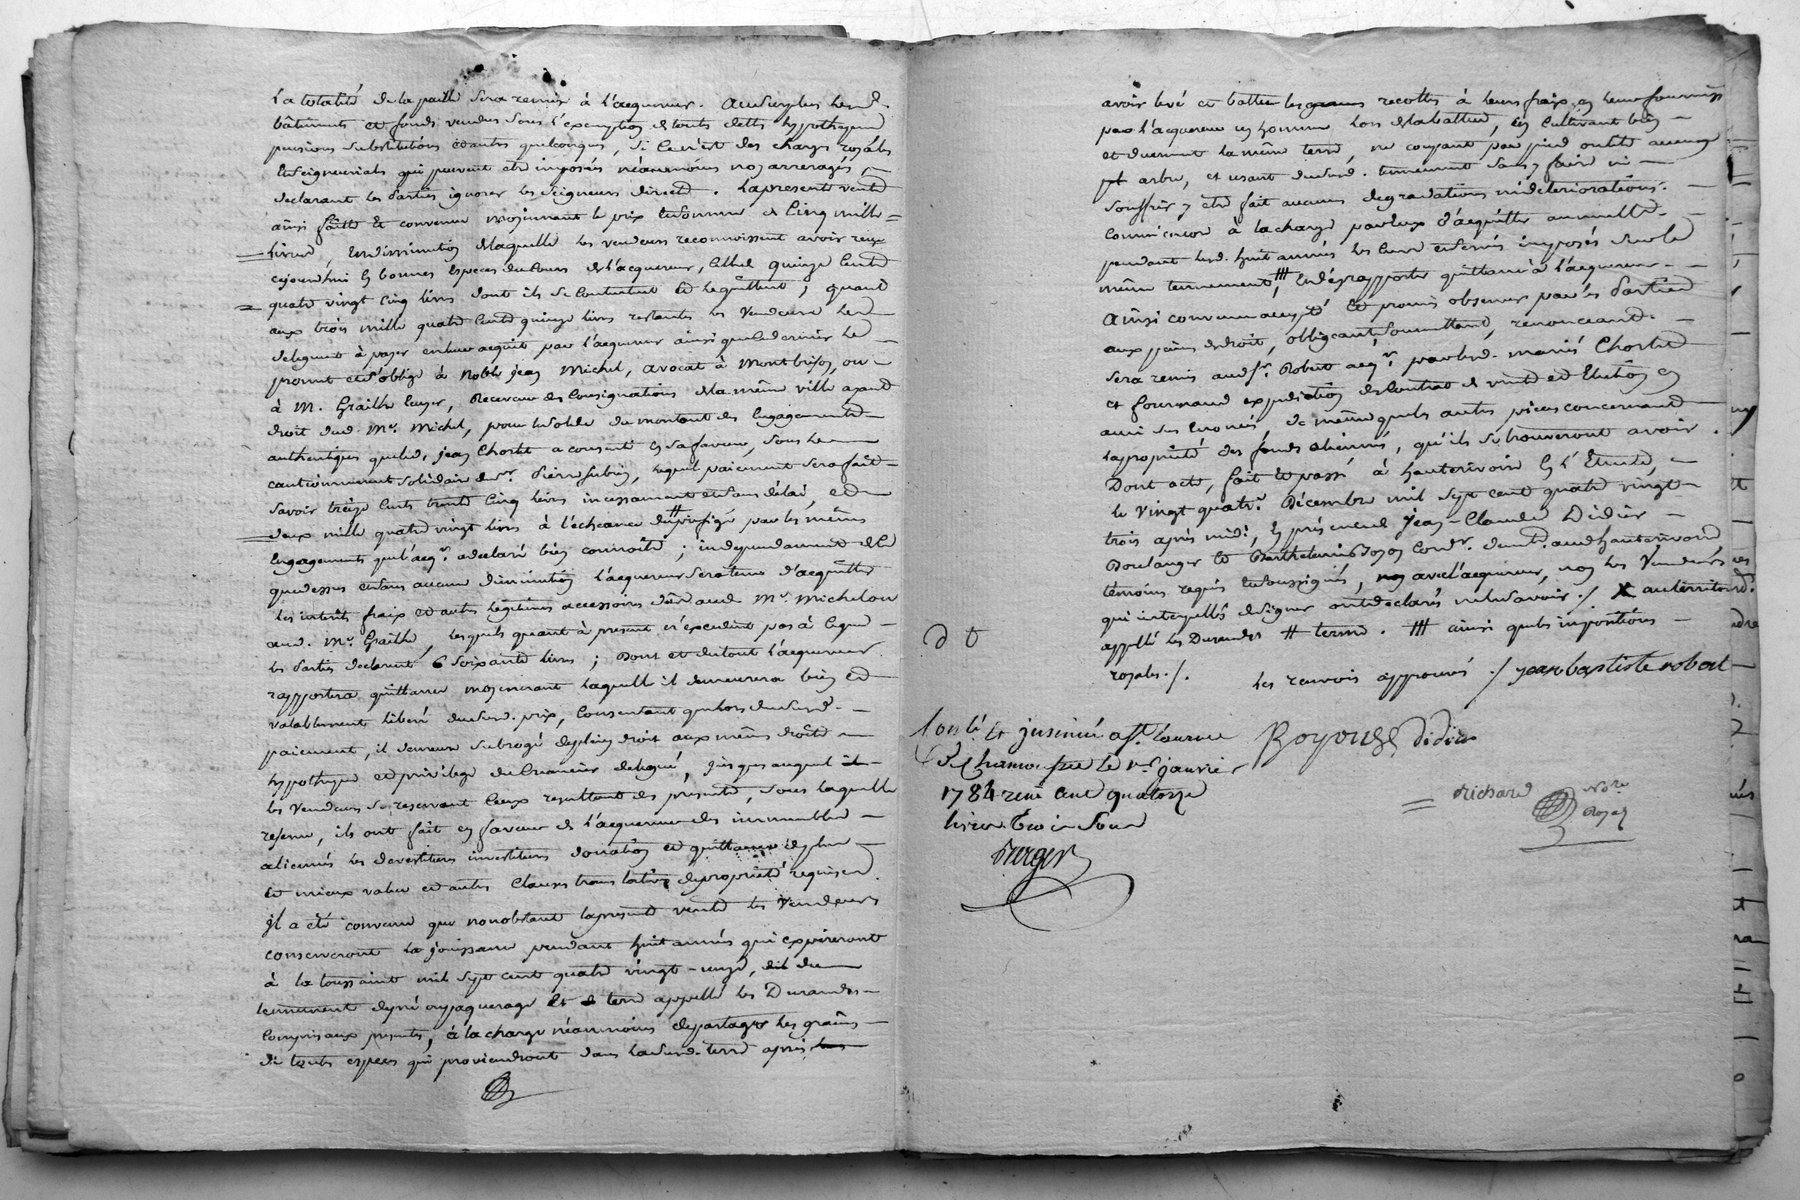 La totalité de la paille sera remise à l'acquereur. Au surplus lesd.
bâtiments et fonds vendus sous l'exemption de touts dettes hypotheques
pensions substitutions et autres quelconques, si ce n'est des charges royales
et seigneuriales qui peuvent etre imposés néanmoins non arreragés,
declarant les parties ignorer les seigneurs directs. La presente vente
ainsi faitte et convenue moyennant le prix et somme de Cinq mille
livres, en diminution de laquelle les vendeurs reconnoissent avoir reçu
cejourdhui en bonnes especes du cours de l'acquereur, celle de quinze cents
quatre vingt cinq livres dont ils se contentent et le quittent ; quand
aux trois mille quatre cents quinze livres restantes les vendeurs les
deleguent à payer en leur acquit par l'acquereur ainsi que le dernier le
promet et s'oblige à Noble jean Michel, avocat à Montbrison, ou
à M. Grailhe Receveur des Consignations de la même ville ayant
droit dud. Me. Michel, pour le solde du montant des Engagements
authentiques que led. jean Chorlet a consenti en sa faveur, sous le
cautionnement solidaire de Sr. Pierre lequel paiement sera fait
savoir treize cents trente cinq livres incessamment et sans délai, et
deux mille quatre vingt livres à l'écheance du # prefigé par les mêmes
Engagements que l'acqr. a declaré bien connoître ; independamment de ce
que dessus et sans aucune diminution l'acquereur sera tenu d'acquitter
les intérêts fraix et autres legitimes accessoires dûs aud. Mr. Michel ou
aud. Mr. Grailhe, lesquels quant à présent n'excedent pas à ce que
les parties declarent 6 soixante livres ; Dont et du tout l'acquereur
rapportera quittance moyennant laquelle il demeurera bien et
valablement liberé dud. prix, Consentant que lors dud.
paiement, il demeure subrogé de plein droit aux mêmes droits
hypotheque et privilege du Creancier delegué, jusques auquel
les Vendeurs se reservent ceux resultant des presentes, sous laquelle
reserve, ils ont fait en faveur de l'acquereur des immeubles
alienés les devestitures investitures donation et quittance de plus
et mieux value et autres Clauses translatives de propriété requises.
Il a été convenu que nonobstant la presente vente les Vendeurs
conserveront la jouissance pendant huit années qui expireront
à la toussaint mil sept cent quatre vingt-onze, du
tenement de pré ou paquerage et de terre appellé les Durandes
Compris aux presentes, à la charge néanmoins de partager les grains
de touts especes qui proviendront dans lad. terre après
avoir levé et battu les recoltes à leurs fraix en leur fournissant
par l'acquereur un homme lors de la battue, en cultivant bien
et duement la même terre, ne coupant par pied ou tête aucuns
arbres, et usant dud. tenement sans y faire ni
souffrir y être fait aucunes degradations ni deteriorations.
Comme encore à la charge par eux d'acquitter annuellement
pendant lesd. huit années les cens et servis imposés sur le
même tenement, ### et d'en rapporter quittance à l'acquereur
Ainsi convenu accepté et promis observer par les Parties
aux peines de droit, obligeant, soumettant, renonceant.
Sera remis aud. Sr. Robert acqr. par lesd. mariés Chorlet
et fournaud expedition du Contrat de vente et Election en
ami énoncé, de même que les autres pieces concernant
la propriété des fonds alienés, qu'ils se trouveront avoir.
Dont acte, fait et passé à hauterivoire en l'Etude,
le Vingt quatre Décembre mil sept cent quatre vingt
trois après midi, En présence de Jean-Claude Didier
Boulanger et Barthelemi Royon Cordr. dud. hauterivoire
témoins requis et soussignés, avec l'acquereur, non les Vendeurs
qui interpellés de signer ont declarés ne le savoir ./ X au territoire
appellé les Durandes # terme. ### ainsi que les impositions
royales ./.
Les renvois approuvés ./ jean baptiste robert
D t
Royon Didier
Contlé et insinué à St. Laurent
de Chamousset le 1er janvier
1784 reçu cent quatorze
livres trois sous
Berger
richard Nore
Royal